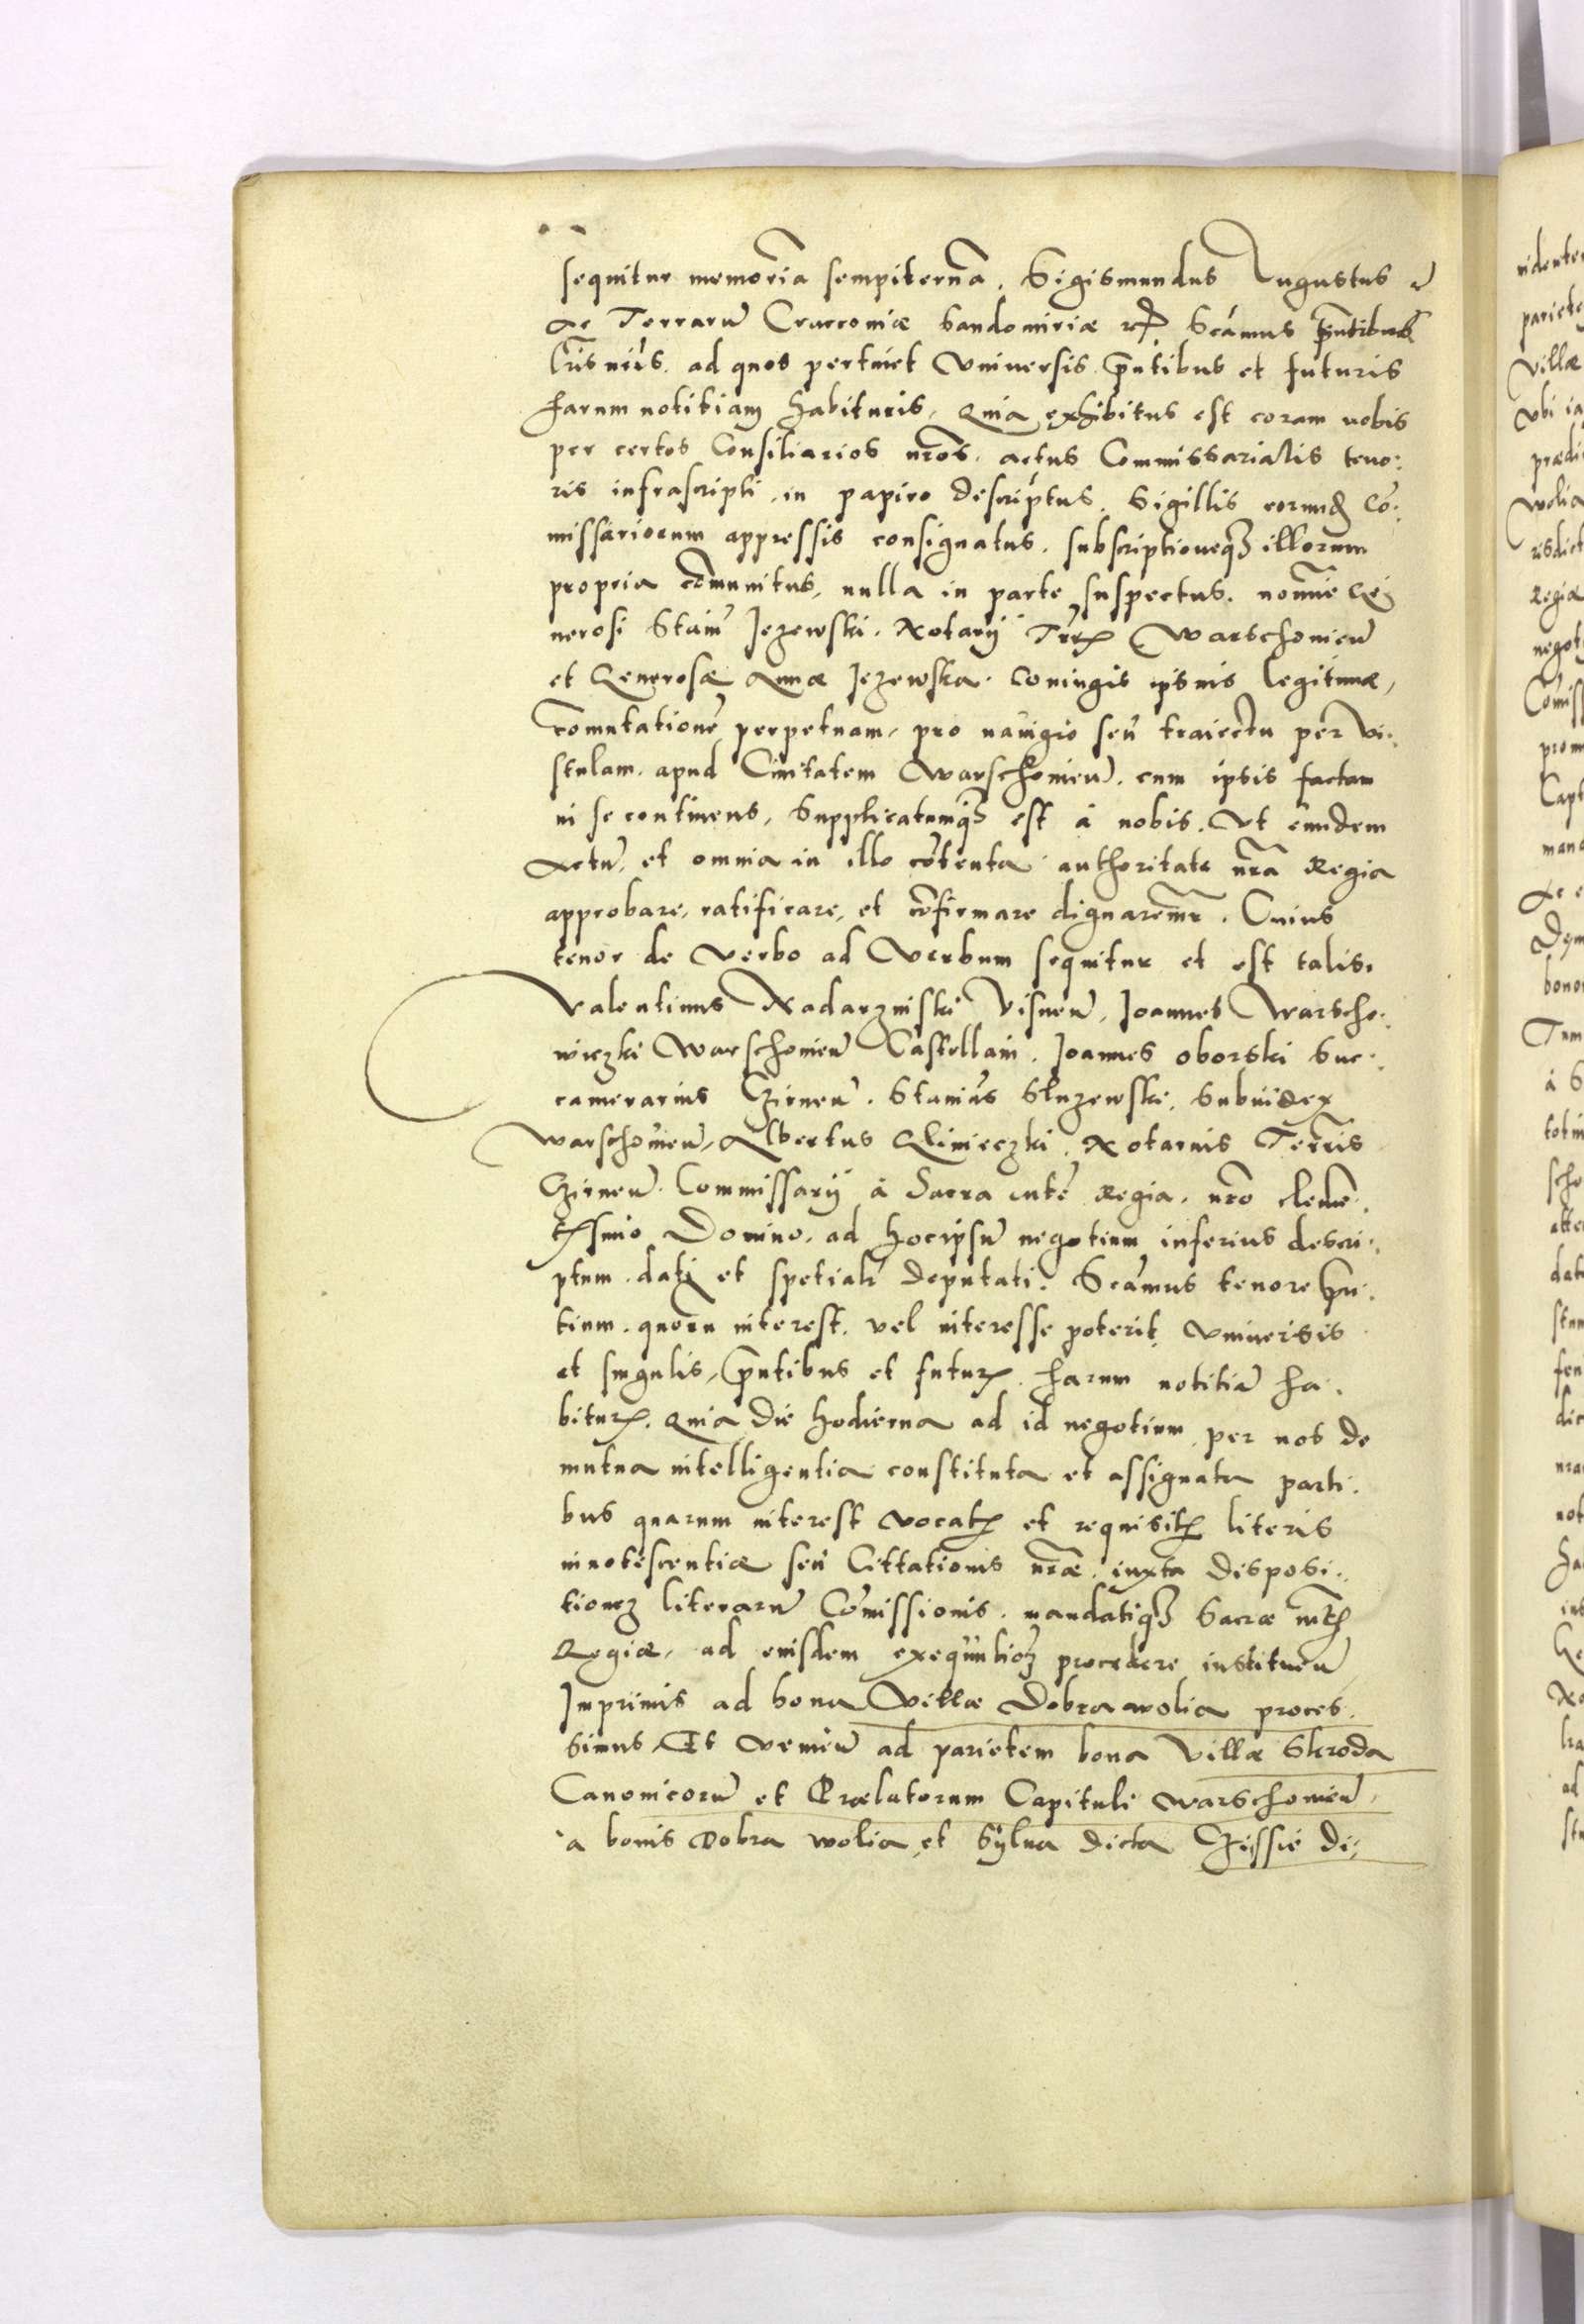 sequitur memoria sempiterna. Sigismundus Augustus
ac Terraru Cracconiæ Sandomiriæ Scamus pntibus
lris nris. ad quos pertinet Vniversis pntibus et futuris
harum notitiam habituris, Quia exhibitus est coram nobis
per certos Consiliarios nros. actus Commissarialis teno:
ris infrascripti in papiro descriptus. Sigillis eorund Co:
missariorum appressis consignatus. subscriptioneq illorum
propria comunitus, nulla in parte suspectus. nomie Ge
nerosi Stani Jezewski. Notarij Terr Warschovien
et Generosæ Annæ Jezewska. Coniugis ipsius legitimæ,
comutatione perpetuam, pro navigio seu traiectu per Vi:
stulam. apud Civitatem Warschovien. cum ipsis factam
in se continens, Supplicatumq est à nobis. Vt eundem
Actu, et omnia in illo cotenta authoritate nra Regia
approbare, ratificare, et cofirmare dignaremur. Cuius
tenor de verbo ad Verbum sequitur et est talis.
Valentinus Nadarzinski Visnen, Joannes Warsche:
wiczki Warschovien Castellani. Joannes oborski Suc:
camerarius Czirnen. Stanius Sluzewski, Subiudex
Warschovien, Albertus Glinieczki. Notarius Terris
Czirnen. Commissarij à Sacra Mte Regia. nro cleme.
tissimo Domino. ad hoc ipsu negotium inferius descri:
ptum. dati et spetialr deputati. Scamus tenore pn:
tium. quoru interest. vel interesse poterit. Vniversis
et singulis, pntibus et futur. harum notitia ha.
bitur. Quia die hodierna ad id negotium per nos de
mutua intelligentia constituta et assignata parti.
bus quarum interest vocat et requisit literis
innotescentiæ seu Cittationis nræ. iuxta disposi..
tionez literaru Comissionis. mandatiq Sacræ Mt
Regiæ, ad eiusdem exequtioz procedere instituen
Imprimis ad bona Villæ Dobrawolia proces.
simus, Et venien ad parietem bona Villæ Skroda
Canonicoru et Prælatorum Capituli Warschovien,
a bonis Dobra wolia, et Sylva dicta Czissie di: